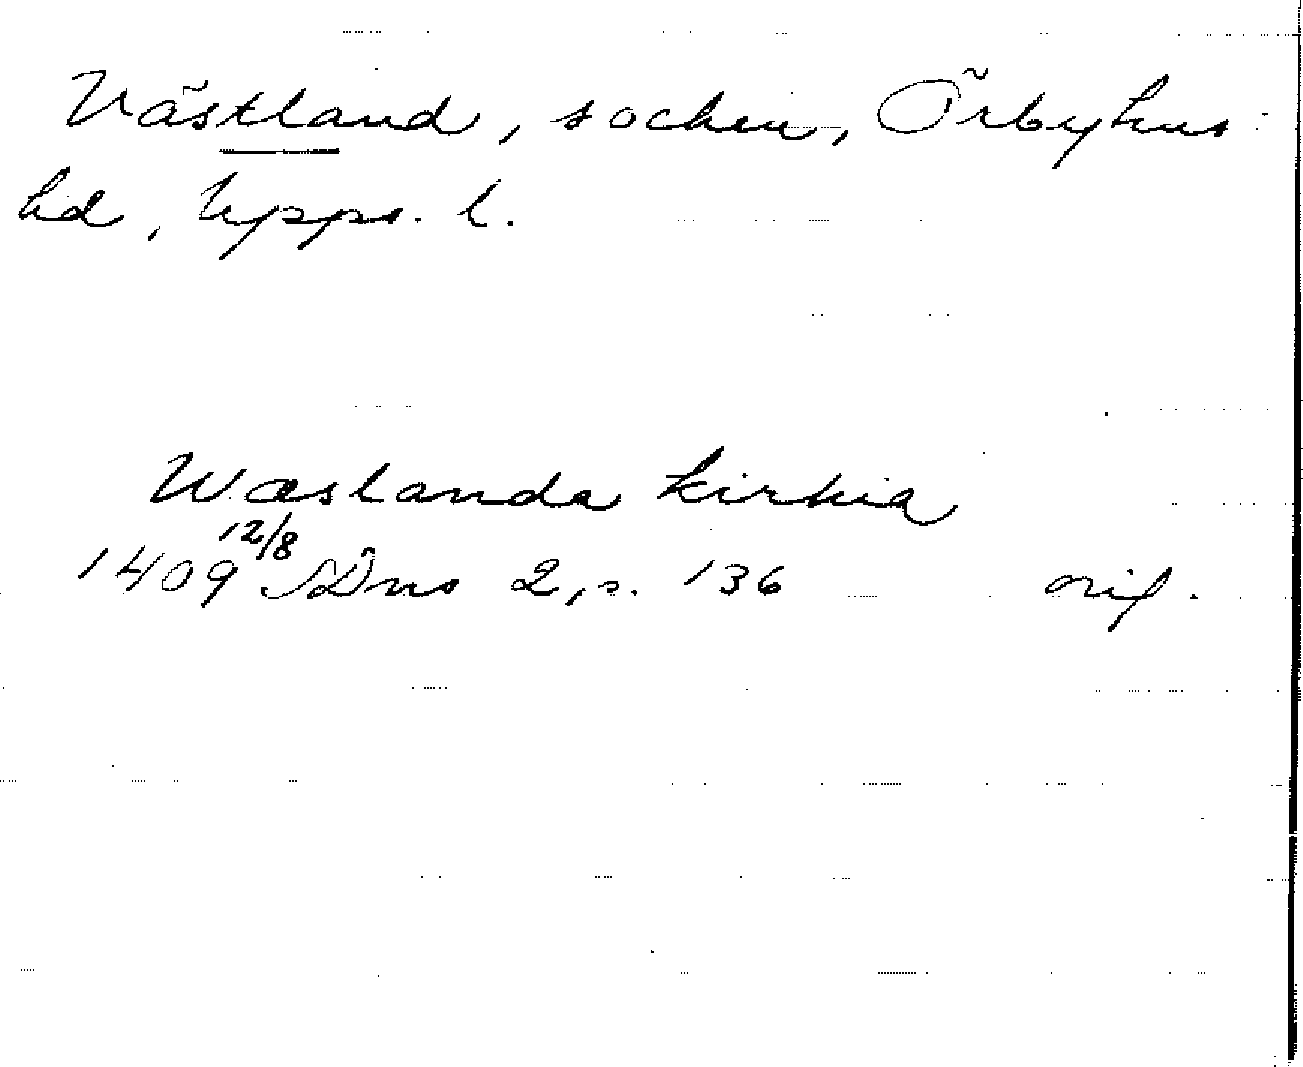 Västland, socken, Örbyhus
hd, Upps. l.
Wæslanda kirkia
1409 12/8 SDns 2, s. 136 orig.